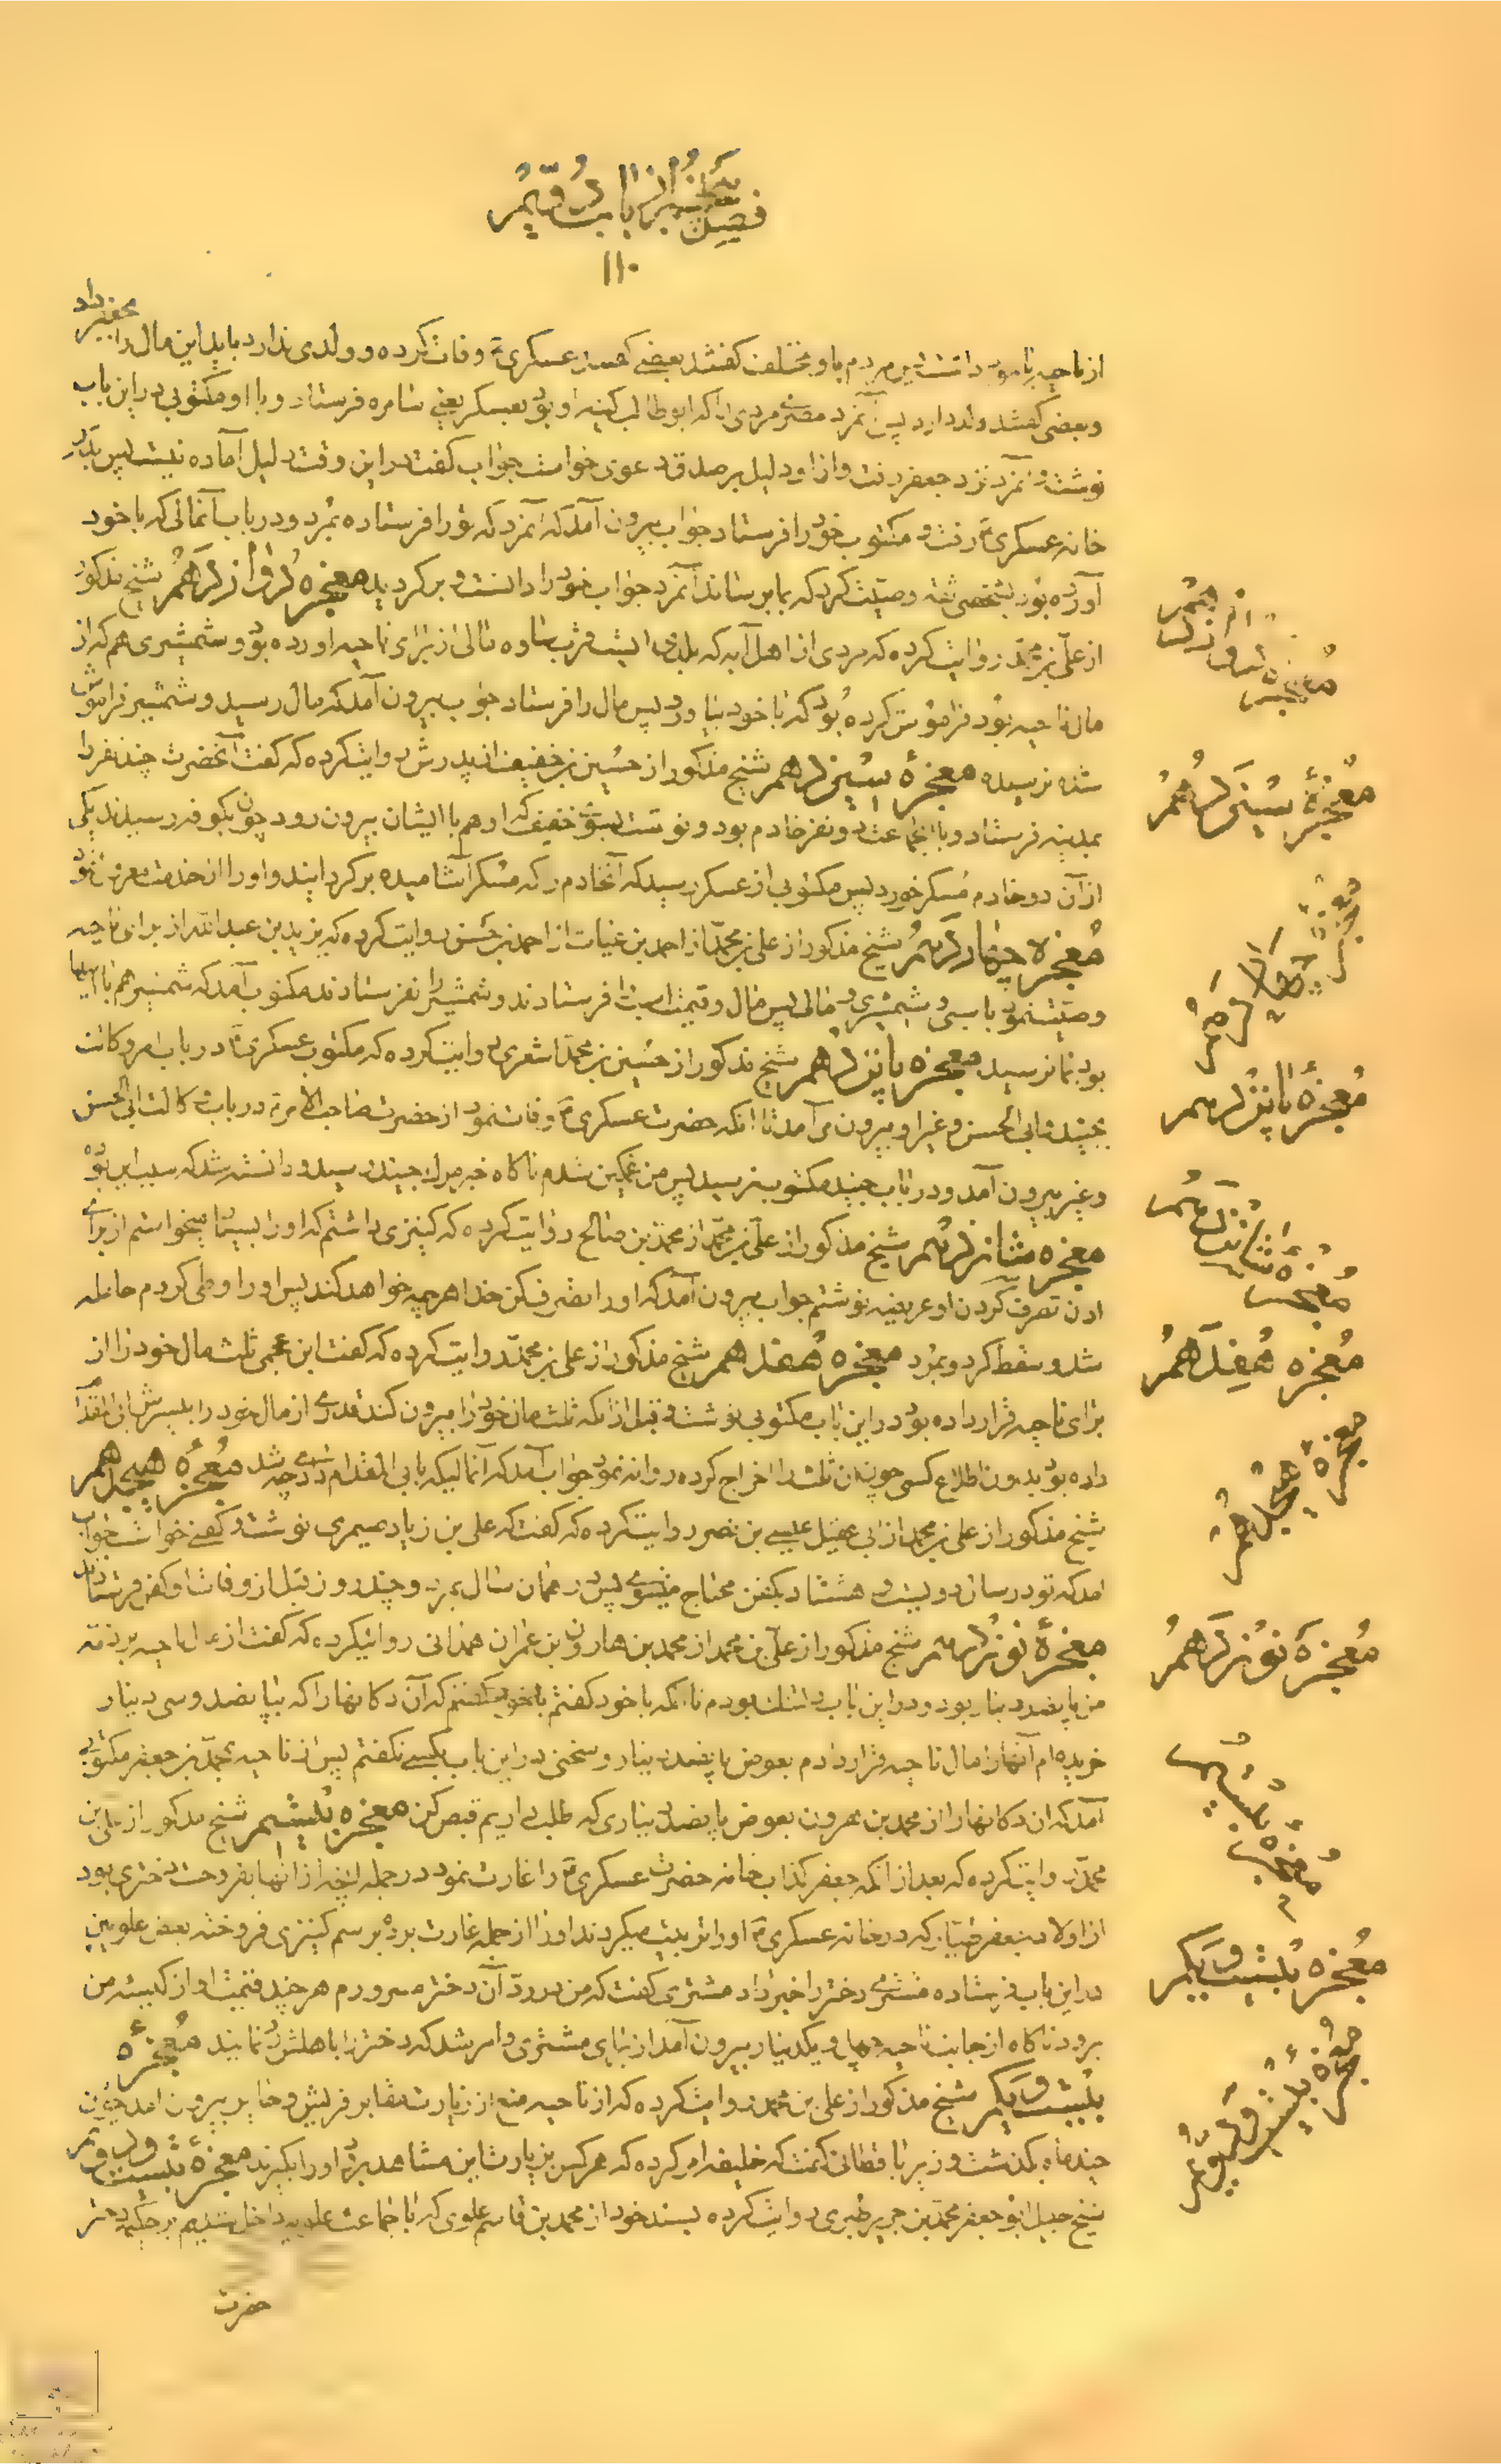 فصل پنجم از باب دویم
۱۱۰
از ناحیه مامور دانست پس مردم با او مختلف گفتند بعضی گفتند عسکری ع وفات کرده و ولدی ندارد باید این مال را بجعفر داد
و بعضی گفتند ولد دارد پس آنمرد مصری مردی را که ابوطالب کنیه او بود بعسکر یعنی سامره فرستاد و با او مکتوبی در این باب
نوشت و آنمرد نزد جعفر رفت و از او دلیل بر صدق دعوی خواست جواب گفت در این وقت دلیل آماده نیست پس بدر
خانه عسکری ع رفت و مکتوب خود را فرستاد جواب بیرون آمد که آنمرد که تو را فرستاده بمرد و در باب آنمالی که با خود
آورده بود بشخصی ثقه وصیت کرد که بما برساند آنمرد جواب خود را دانست و برگردید معجزه دوازدهم شیخ مذکور
از علی بن محمد روایت کرده که مردی از اهل آبه که بلدی است قرب ساوه مالی از برای ناحیه آورده بود و شمشیری هم که از
مال ناحیه بود فراموش کرده بود که با خود بیاورد پس مال را فرستاد جواب بیرون آمد که مال رسید و شمشیر فراموش
شده نرسیده معجزهٔ سیزدهم شیخ مذکور از حسین بن خفیف از پدرش روایت کرده که گفت آنحضرت چند نفر را
بمدینه فرستاد و با آنجماعت دو نفر خادم بود و نوشت بسوی خفیف که او هم با ایشان بیرون رود چون بکوفه رسیدند یکی
از آن دو خادم مسکر خورد پس مکتوبی از عسکر رسید که آنخادم را که مسکر آشامیده برگردانید و او را از خدمت معزول نمود
معجزه چهاردهم شیخ مذکور از علی بن محمد از احمد بن غیاث از احمد بن حسن روایت کرده که یزید بن عبدالله از برای ناحیه
وصیت نمود باسبی و شمشیری و مالی پس مال و قیمت اسب را فرستادند و شمشیر را نفرستادند مکتوب آمد که شمشیر هم با آنها
بود بما نرسید معجزه پانزدهم شیخ مذکور از حسین بن محمد اشعری روایت کرده که مکتوب عسکری ع در باب امر وکالت
بجنید و ابی الحسن و غیر او بیرون می‌آمد تا آنکه حضرت عسکری ع وفات نمود از حضرت صاحب الامر ع در باب وکالت ابی الحسن
و غیر بیرون آمد و در باب جنید مکتوب نرسید پس من غمگین شدم ناگاه خبر مرک جنید رسید و دانسته شد که سبب این بوده
معجزه شانزدهم شیخ مذکور از علی بن محمد از محمد بن صالح روایت کرده که کنیزی داشتم که او را میخواستم از برای
اذن تصرف کردن او عریضه نوشتم جواب بیرون آمد که او را تصرف کن خدا هر چه خواهد کند پس او را وطی کردم حامله
شد و سقط کرد و بمرد معجزه هفدهم شیخ مذکور از علی بن محمد روایت کرده که گفت ابن عجمی ثلث مال خود را از
برای ناحیه قرار داده بود در این باب مکتوبی نوشت و قبل از آنکه ثلث مال خود را بیرون کند قدری از مال خود را بپسرش ابی المقدام
داده بود بدون اطلاع کسی چون آن ثلث را اخراج کرده روانه نمود جواب آمد که آنمالیکه بابی المقدام دادی چه شد معجزه هیجدهم
شیخ مذکور از علی بن محمد از ابی عقیل عیسی بن نصر روایت کرده که گفت که علی بن زیاد صیمری نوشت و کفنی خواست جواب
آمد که تو در سال دویست و هشتاد بکفن محتاج میشوی پس در همان سال بمرد و چند روز قبل از وفات او کفن فرستادند
معجزهٔ نوزدهم شیخ مذکور از علی بن محمد از محمد بن هارون بن عمران همدانی روایتکرده که گفت از مال ناحیه بر ذمه
من پانصد دینار بود و در این باب دلتنک بودم تا آنکه با خود گفتم که آن دکانها را که بپانصد و سی دینار
خریده‌ام آنها را مال ناحیه قرار دادم بعوض پانصد دینار و سخنی در این باب بکسی نگفتم پس از ناحیه بمحمد بن جعفر مکتوبی
آمد که آن دکانها را از محمد بن هرون بعوض پانصد دیناری که طلب داریم قبض کن معجزه بیستم شیخ مذکور از علی بن
محمد روایت کرده که بعد از آنکه جعفر کذاب خانه حضرت عسکری ع را غارت نمود در جمله آنچه از آنها بفروخت دختری بود
از اولاد جعفر طیار که در خانه عسکری ع او را تربیت میکردند او را از جمله غارت برده برسم کنیزی فروخته بعض علویین
در این باب فرستاده مشتری دختر را خبر داد مشتری گفت که من در رد آن دختر مسرورم هر چند قیمت او از کیسه من
برود ناگاه از جانب ناحیه چهل و یکدینار بیرون آمد از برای مشتری و امر شد که دختر را باهلش رد نمایند معجزهٔ
بیست و یکم شیخ مذکور از علی بن محمد روایت کرده که از ناحیه منع از زیارت مقابر قریش و حایر بیرون آمد چون
چند ماه بگذشت وزیر باقطانی گفت که خلیفه امر کرده که هر کس بزیارت این مشاهد برود او را بگیرند معجزهٔ بیست و دویم
شیخ جلیل ابو جعفر محمد بن جریر طبری روایت کرده بسند خود از محمد بن قاسم علوی که با جماعت علویه داخل شدیم بر حکیمه دختر
حضرت
معجزه دوازدهم
معجزهٔ سیزدهم
معجزه چهاردهم
معجزهٔ پانزدهم
معجزهٔ شانزدهم
معجزه هفدهم
معجزهٔ هیجدهم
معجزهٔ نوزدهم
معجزهٔ بیستم
معجزه بیست و یکم
معجزهٔ بیست و دویم